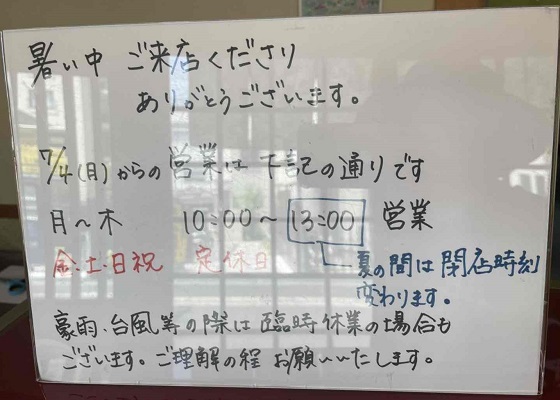 暑い中 ご来店くださり
ありがとうございます。
7/4(月)からの営業は下記の通りです
月～木 10:00～13:00 営業
金・土・日祝 定休日
夏の間は閉店時刻
変わります。
豪雨、台風等の際は臨時休業の場合も
ございます。ご理解の程 お願いいたします。